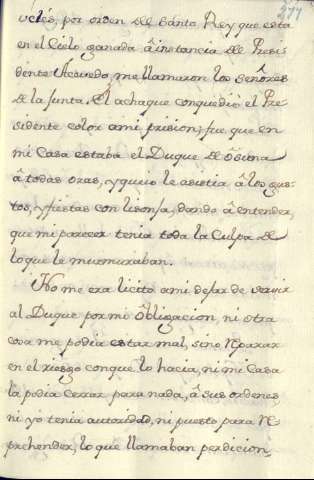 277
uclés, por orden del Santo Rey que está
en el Cielo ganada â instancia del Presi-
dente Acevedo, me llamaron los señôres
de la Junta, El achaque conquedió el Pre-
sidente color ami prision, fue, que en
mi Casa estaba el Duque de Ôsuna
â todas oras, yquio le asistia â los gus-
tos, yfiestas con lisonja, dando â entender,
que mi parecer tenia toda la Culpa de
loque le murmuraban.
No me era licito ami dejar de servir
al Duque por mi ôbligacion, ni otra
cosa me podia estar mal, sino Reparar
en el riesgo conque lo hacia, ni mi Casa
la podia cerrar para nada, â sus ordenes
ni yo tenia autoridad, ni puesto para Re-
prehender, lo que llamaban perdicion,